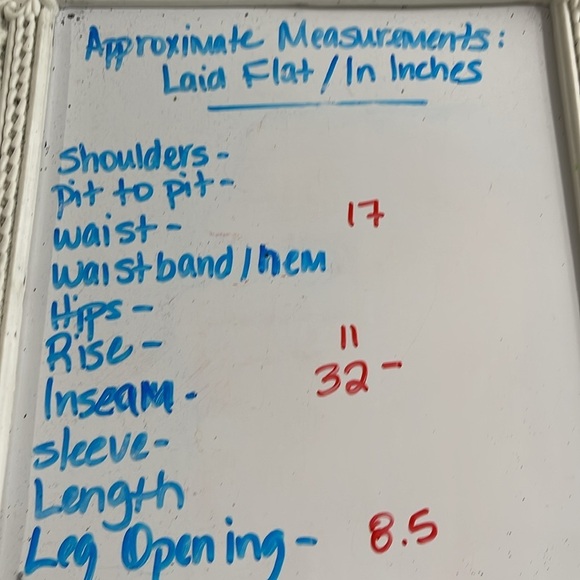 Approximate Measurements:
Laid Flat / In Inches
Shoulders -
Pit to pit -
Waist - 17
Waistband / hem
Hips -
Rise - 11
Inseam - 32 -
Sleeve -
Length
Leg Opening - 8.5